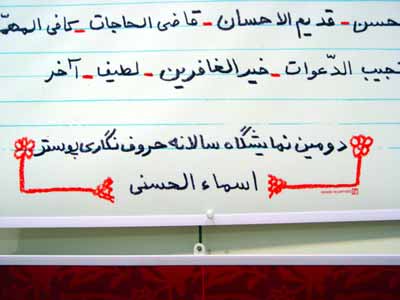 محسن - قدیم الاحسان - قاضی الحاجات - کافی المهمّ
مجیب الدّعوات - خیر الغافرین - لطیف - آخر
دومین نمایشگاه سالانه حروف نگاری پوستر
اسماء الحسنی